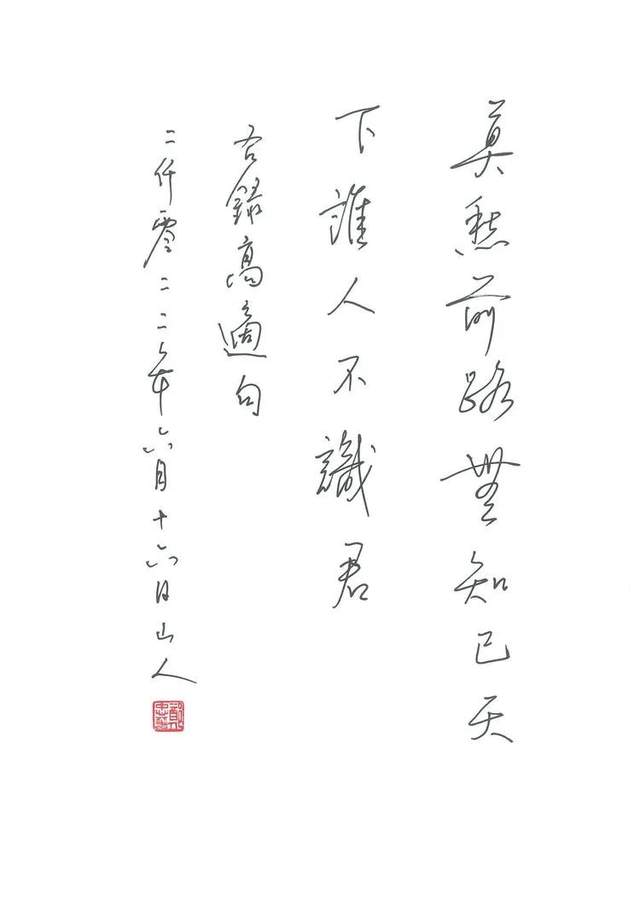 莫愁前路無知己天
下誰人不識君
右錄高適句
二仟零二二年六月十六日山人